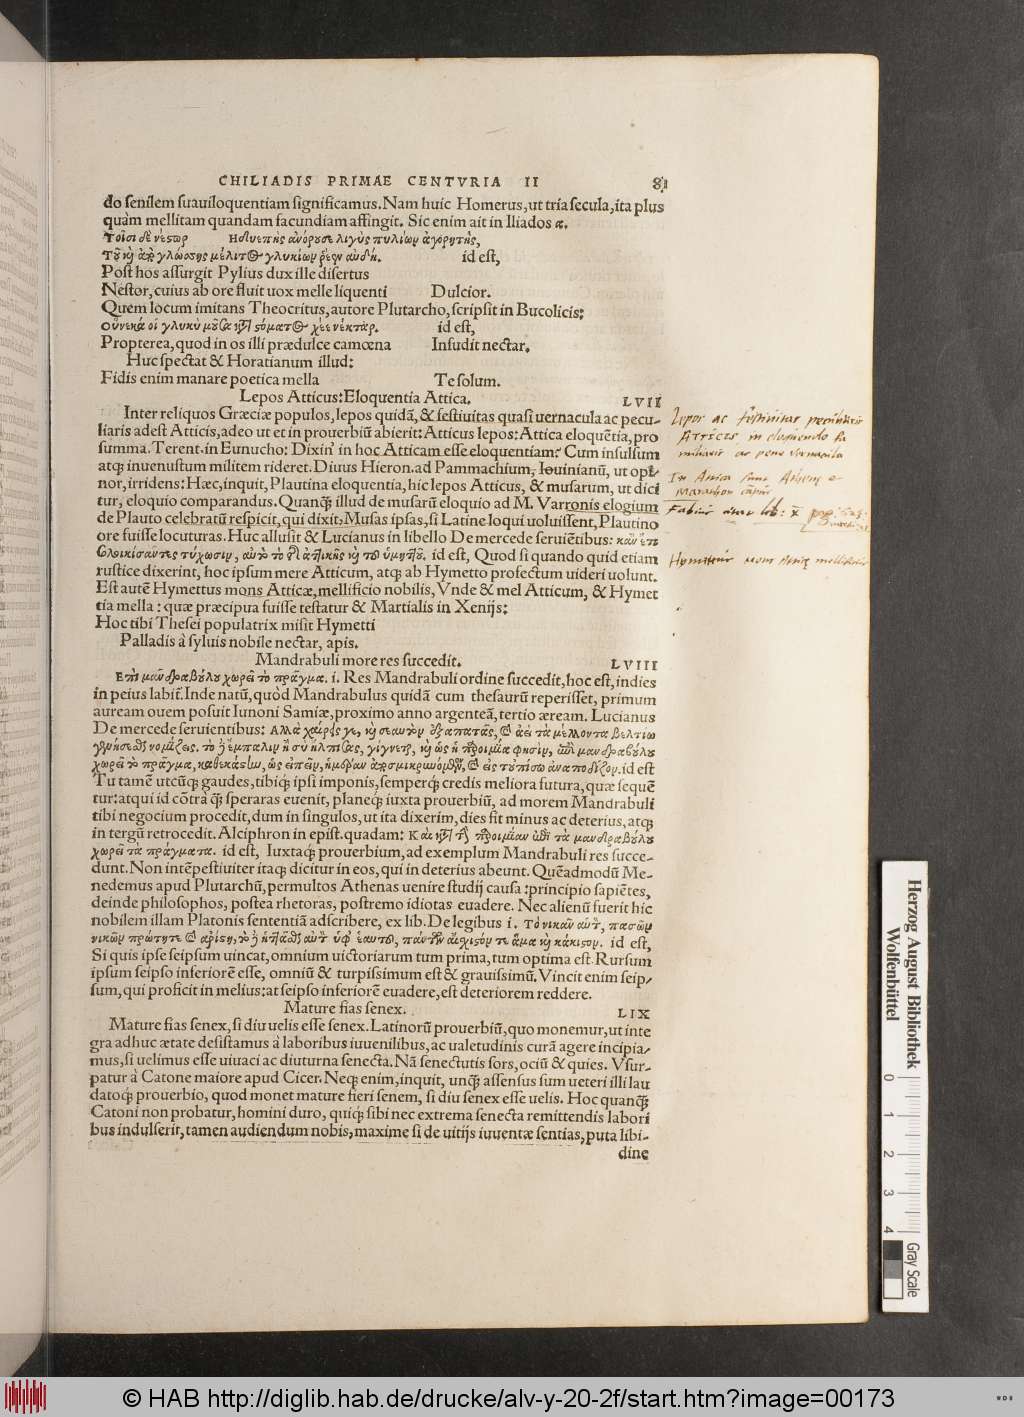 CHILIADIS PRIMAE CENTVRIA II 81
do senilem suauiloquentiam significamus. Nam huic Homerus, ut tria secula, ita plus
quàm mellitam quandam facundiam affingit. Sic enim ait in Iliados α.
Τοῖσι δὲ νέστωρ Ἡδυεπὴς ἀνόρουσε λιγὺς πυλίων ἀγορητής,
Τοῦ καὶ ἀπὸ γλώσσης μέλιτος γλυκίων ῥέεν αὐδή. id est,
Post hos assurgit Pylius dux ille disertus
Nestor, cuius ab ore fluit uox melle liquenti Dulcior.
Quem locum imitans Theocritus, autore Plutarcho, scripsit in Bucolicis:
οὕνεκά οἱ γλυκὺ μοῦσα κατὰ στόματος χέε νέκταρ. id est,
Propterea, quod in os illi prædulce camœna Insudit nectar.
Huc spectat & Horatianum illud:
Fidis enim manare poetica mella Te solum.
Lepos Atticus: Eloquentia Attica. LVII
Inter reliquos Græciæ populos, lepos quidā, & festiuitas quasi uernacula ac pecu-
liaris adest Atticis, adeo ut et in prouerbiū abierit: Atticus lepos: Attica eloquētia, pro
summa. Terent. in Eunucho: Dixin' in hoc Atticam esse eloquentiam? Cum insulsum
atq; inuenustum militem rideret. Diuus Hieron. ad Pammachium, Iouinianū, ut opi-
nor, irridens: Hæc, inquit, Plautina eloquentia, hic lepos Atticus, & musarum, ut dici
tur, eloquio comparandus. Quanq̄ illud de musarū eloquio ad M. Varronis elogium
de Plauto celebratū respicit, qui dixit, Musas ipsas, si Latine loqui uoluissent, Plautino
ore fuisse locuturas. Huc allusit & Lucianus in libello De mercede seruiētibus: κᾂν ἔτι
σολοικίσαντες τύχωσιν, αὐτὸ τοῦτο ἀττικῆς καὶ τοῦ ὑμηττοῦ. id est, Quod si quando quid etiam
rustice dixerint, hoc ipsum mere Atticum, atq; ab Hymetto profectum uideri uolunt.
Est autē Hymettus mons Atticæ, mellificio nobilis, Vnde & mel Atticum, & Hymet
tia mella: quæ præcipua fuisse testatur & Martialis in Xenijs:
Hoc tibi Thesei populatrix misit Hymetti
Palladis à syluis nobile nectar, apis.
Mandrabuli more res succedit. LVIII
Ἐπὶ μανδραβόλου χωρεῖ τὸ πρᾶγμα. i. Res Mandrabuli ordine succedit, hoc est, indies
in peius labit. Inde natū, quòd Mandrabulus quidā cum thesaurū reperisset, primum
auream ouem posuit Iunoni Samiæ, proximo anno argenteā, tertio æream. Lucianus
De mercede seruientibus:
id est
Tu tamē utcūq; gaudes, tibiq; ipsi imponis, semperq; credis meliora futura, quæ sequē
tur: atqui id cōtra q̄ speraras euenit, planeq; iuxta prouerbiū, ad morem Mandrabuli
tibi negocium procedit, dum in singulos, ut ita dixerim, dies fit minus ac deterius, atq;
in tergū retrocedit. Alciphron in epist. quadam:
χωρεῖ τὰ πράγματα. id est, Iuxtaq; prouerbium, ad exemplum Mandrabuli res succe-
dunt. Non intēpestiuiter itaq; dicitur in eos, qui in deterius abeunt. Quēadmodū Me-
nedemus apud Plutarchū, permultos Athenas uenire studij causa: principio sapiētes,
deinde philosophos, postea rhetoras, postremo idiotas euadere. Nec alienū fuerit hic
nobilem illam Platonis sententiā adscribere, ex lib. De legibus i. Τὸ νικᾶν αὑτὸν, πασῶν
νικῶν πρώτη τε καὶ ἀρίστη, τὸ δὲ ἡττᾶσθαι αὐτὸν ὑφ' ἑαυτοῦ, πάντων αἴσχιστόν τε ἅμα καὶ κάκιστον. id est,
Si quis ipse seipsum uincat, omnium uictoriarum tum prima, tum optima est. Rursum
ipsum seipso inferiorē esse, omniū & turpissimum est & grauissimū. Vincit enim seip-
sum, qui proficit in melius: at seipso inferiorē euadere, est deteriorem reddere.
Mature fias senex. LIX
Mature fias senex, si diu uelis esse senex. Latinorū prouerbiū, quo monemur, ut inte
gra adhuc ætate desistamus à laboribus iuuenilibus, ac ualetudinis curā agere incipia-
mus, si uelimus esse uiuaci ac diuturna senecta. Nā senectutis sors, ociū & quies. Vsur-
patur à Catone maiore apud Cicer. Neq; enim, inquit, unq̄ assensus sum ueteri illi lau
datoq; prouerbio, quod monet mature fieri senem, si diu senex esse uelis. Hoc quanq̄
Catoni non probatur, homini duro, quiq; sibi nec extrema senecta remittendis labori
bus indulserit, tamen audiendum nobis, maxime si de uitijs iuuentæ sentias, puta libi-
dine
Lepor ac festiuitas peculiaris
Atticis in eloquendo fa
miliaris ac pene vernacula
In Attica sunt Athenę e
Marathon
Fabius lib: x
Hymettus mons
Herzog August Bibliothek
Wolfenbüttel
0 1 2 3 4
Gray Scale
© HAB http://diglib.hab.de/drucke/alv-y-20-2f/start.htm?image=00173